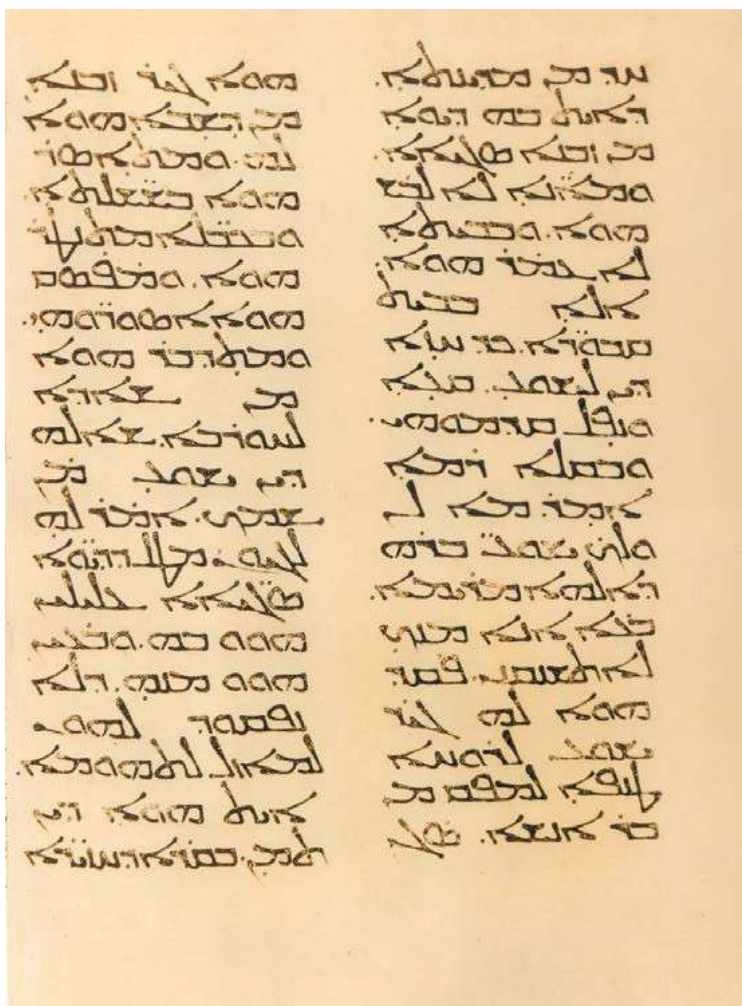 ܚܕ ܡܢ ܡܕܝܢܬܐ.
ܕܐܝܬ ܒܗ ܕܝܘܐ
ܡܢ ܙܒܢܐ ܣܓܝܐܐ.
ܘܡܐܢ̈ܐ ܠܐ ܠܒܫ
ܗܘܐ. ܘܒܒܝܬܐ
ܠܐ ܥܡܪ ܗܘܐ.
ܐܠܐ ܒܒܝܬ
ܩܒܘܪ̈ܐ. ܟܕ ܚܙܐ
ܕܝܢ ܠܝܫܘܥ. ܩܥܐ
ܘܢܦܠ ܩܕܡܘܗܝ.
ܘܒܩܠܐ ܪܡܐ
ܐܡܪ. ܡܢܐ ܠܢ
ܘܠܟ ܝܫܘܥ ܒܪܗ
ܕܐܠܗܐ ܡܪܝܡܐ.
ܒܥܐ ܐܢܐ ܡܢܟ
ܠܐ ܬܫܢܩܢܝ. ܦܩܕ
ܗܘܐ ܠܗ ܓܝܪ
ܝܫܘܥ ܠܪܘܚܐ
ܛܢܦܐ ܠܡܦܩ ܡܢ
ܒܪ ܐܢܫܐ. ܣܓܝ
ܗܘܐ ܓܝܪ ܙܒܢܐ
ܡܢ ܕܫܒܐ ܗܘܐ
ܠܗ. ܘܡܬܐܣܪ
ܗܘܐ ܒܫܫ̈ܠܬܐ
ܘܒܟܒ̈ܠܐ ܡܬܢܛܪ
ܗܘܐ. ܘܡܦܣܩ
ܗܘܐ ܐܣܘܪ̈ܘܗܝ.
ܘܡܬܕܒܪ ܗܘܐ
ܡܢ ܫܐܕܐ
ܠܚܘܪܒܐ. ܫܐܠܗ
ܕܝܢ ܝܫܘܥ ܡܢ
ܫܡܟ. ܐܡܪ ܠܗ
ܠܓܝܘܢ. ܡܛܠ ܕܕܝ̈ܘܐ
ܣܓܝ̈ܐܐ ܥܠܝܠܝܢ
ܗܘܘ ܒܗ. ܘܒܥܝܢ
ܗܘܘ ܡܢܗ. ܕܠܐ
ܢܦܩܘܕ ܠܗܘܢ
ܠܡܐܙܠ ܠܬܗܘܡܐ.
ܐܝܬ ܗܘܐ ܕܝܢ
ܬܡܢ ܒܩܪܐ ܕܚܙܝܪ̈ܐ